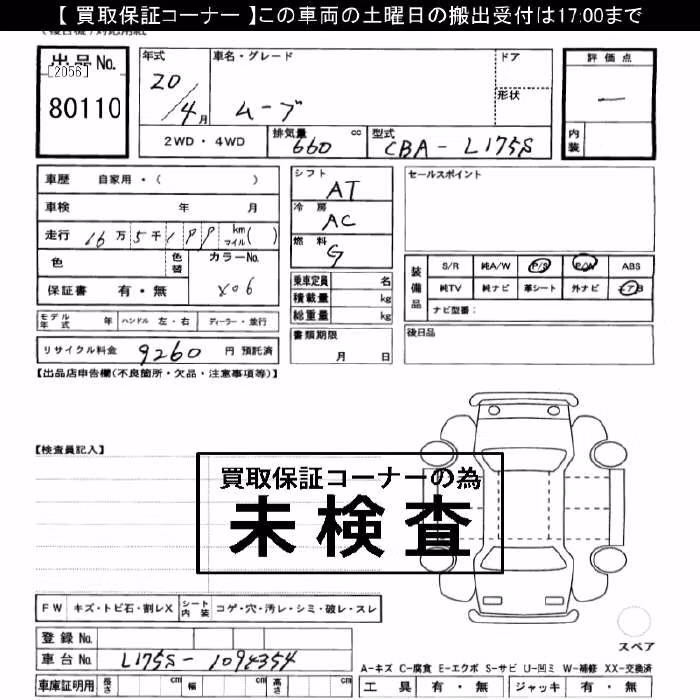 【 買取保証コーナー 】この車両の土曜日の搬出受付は17:00まで
出品No.
[2056]
80110
年式
20/4月
車名・グレード
ムーブ
ドア
形状
評価点
―
内装
2WD・4WD
排気量 660 cc
型式 CBA-L175S
車歴 自家用・( )
車検 年 月
走行 16万5千1 km マイル( )
色
色替
カラーNo.
X06
保証書 有・無
モデル年式 年 ハンドル 左・右 ディーラー・並行
リサイクル料金 9260 円 預託済
シフト
AT
冷房
AC
燃料
G
乗車定員 名
積載量 kg
総重量 kg
書類期限
月 日
セールスポイント
装備品
S/R 純A/W P/S P/W ABS
純TV 純ナビ 革シート 外ナビ エアB
ナビ型番:
後日品
【出品店申告欄(不良箇所・欠品・注意事項等)】
【検査員記入】
買取保証コーナーの為
未検査
FW キズ・トビ石・割レX シート内装 コゲ・穴・汚レ・シミ・破レ・スレ
登録No.
車台No. L175S-
車庫証明用 長さ cm 幅 cm 高さ cm
スペア
A-キズ C-腐食 E-エクボ S-サビ U-凹ミ W-補修 XX-交換済
工具 有・無 ジャッキ 有・無